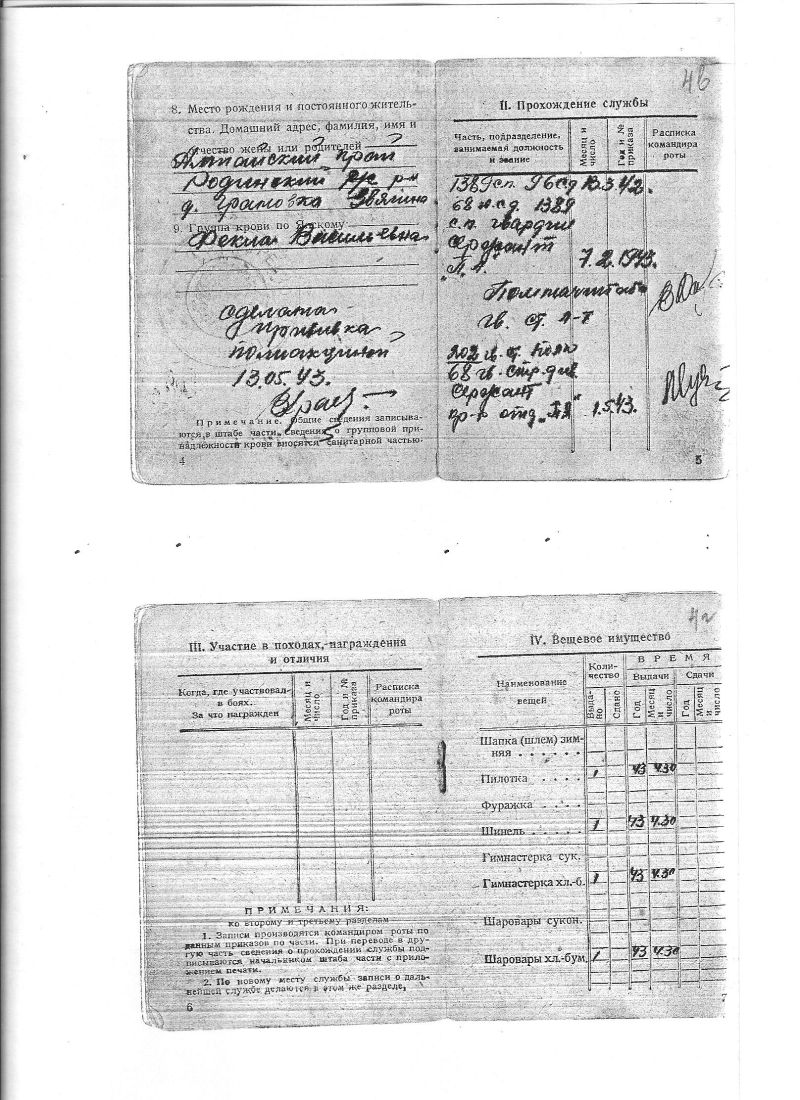 4б
8. Место рождения и постоянного житель-
ства. Домашний адрес, фамилия, имя и
отчество жены или родителей
Алтайский край
Родинский р-н
д. Звягина
9. Группа крови по Янскому
Фекла Васильевна
сделана
прививка
13.05.43.
Врач
Примечание. Общие сведения записыва-
ются в штабе части, сведения о групповой при-
надлежности крови вносятся санитарной частью.
4
II. Прохождение службы
Часть, подразделение, занимаемая должность и звание
Месяц и число
Год и № приказа
Расписка командира роты
1389 сп. 96 сд 13.3.42.
68 сд. 1389
с.п. гвардии
Сержант
7.2.1943.
гв. ст.
202 гв. ст. полк
68 гв. стр. див.
Сержант
1.5.43.
5
4г
III. Участие в походах, награждения
и отличия
Когда, где участвовал
в боях.
За что награжден
Месяц и число
Год и № приказа
Расписка командира роты
ПРИМЕЧАНИЯ:
ко второму и третьему разделам
1. Записи производятся командиром роты по
данным приказов по части. При переводе в дру-
гую часть сведения о прохождении службы под-
писываются начальником штаба части с прило-
жением печати.
2. По новому месту службы записи о даль-
нейшей службе делаются в этом же разделе,
6
IV. Вещевое имущество
Наименование вещей
Коли-
чество
ВРЕМЯ
Выдачи
Сдачи
Выда-
но
Сдано
Год
Месяц и число
Год
Месяц и число
Шапка (шлем) зим-
няя . . . . . .
Пилотка . . . . 1 43 4.30
Фуражка . . . .
Шинель . . . . . 1 43 4.30
Гимнастерка сук.
Гимнастерка хл.-б. 1 43 4.30
Шаровары сукон.
Шаровары хл.-бум. 1 43 4.30
7